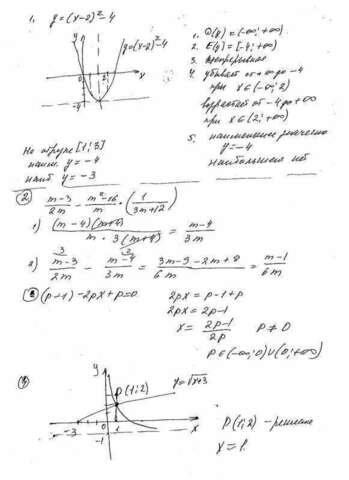 1. y=(x-2)²-4
y
y=(x-2)²-4
0 2 x
-4
1. D(y)=(-∞;+∞)
2. E(y)=[-4;+∞)
3. непрерывная
4. убывает от +∞ до -4
при x∈(-∞;2)
возрастает от -4 до +∞
при x∈(2;+∞)
5. наименьшее значение
y=-4
наибольшего нет
На отрезке [1;3]
наим. y=-4
наиб y=-3
② (m-3)/2m - (m²-16)/m · (1/(3m+12))
1) (m-4)(m+4)/(m·3(m+4)) = (m-4)/3m
2) (m-3)/2m - (m-4)/3m = (3m-9-2m+8)/6m = (m-1)/6m
③ (p-1)-2px+p=0
2px = p-1+p
2px = 2p-1
x = (2p-1)/2p p≠0
p∈(-∞;0)∪(0;+∞)
④
y
P(1;2)
y=√x+3
-3 0 1 x
-1
P(1;2) - решение
x=1.